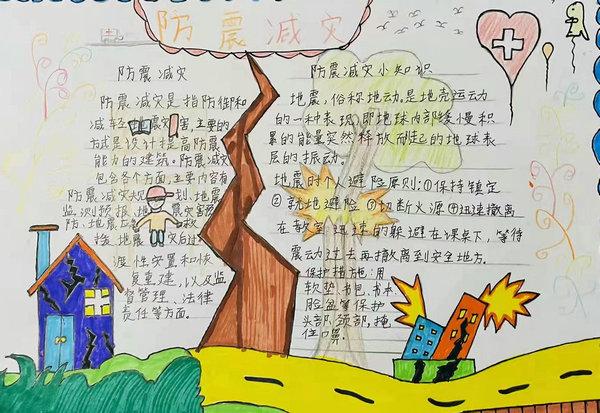 防震减灾
防震减灾
防震减灾是指防御和
减轻地震灾害,主要的
方式是设计提高防震
能力的建筑。防震减灾
包含各个方面,主要内容有
防震减灾规划、地震
监测预报、地震灾害预
防、地震应 救
援、地震灾后过
渡性安置和恢
复重建,以及监
督管理、法律
责任等方面.
防震减灾小知识
地震,俗称地动。是地壳运动
的一种表现,即地球内部缓慢积
累的能量突然释放而起的地球表
层的振动。
地震时个人避险原则:①保持镇定
②就地避险①切断火源④迅速撤离
在教室迅速的躲避在课桌下,等待
震动过去再撤离到安全地方,
保护措施:用
软垫、书包、书本
脸盆等保护
头部、颈部,掩
住口鼻.